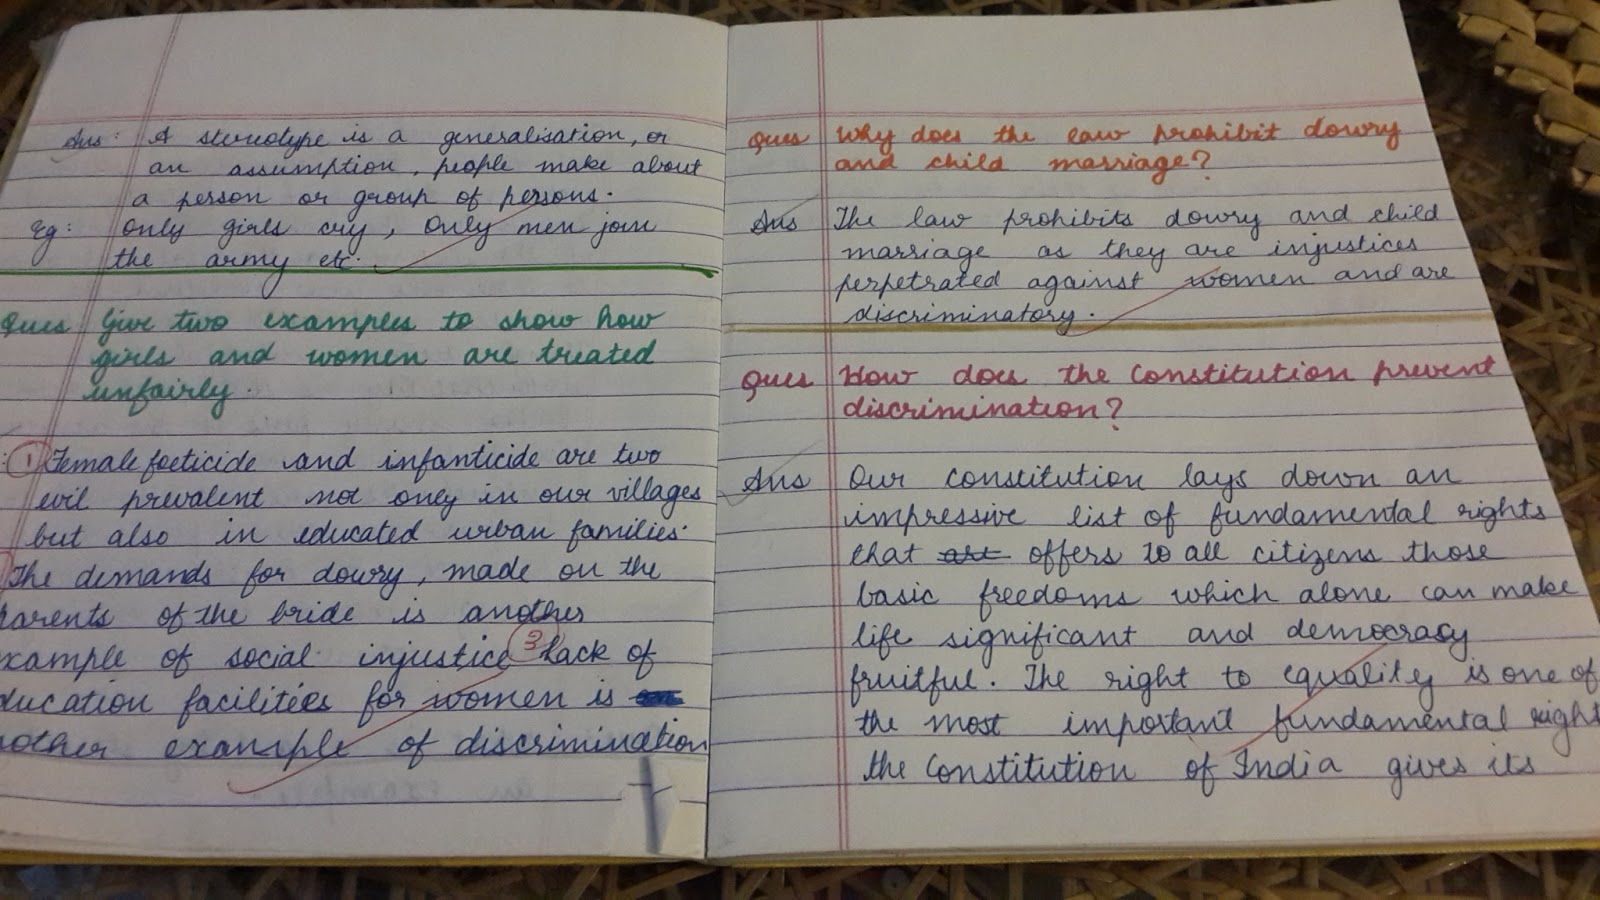 Ans: A stereotype is a generalisation, or
an assumption, people make about
a person or group of persons.
Eg: Only girls cry, Only men join
the army etc.
Ques Give two examples to show how
girls and women are treated
unfairly.
: 1 Female foeticide and infanticide are two
evil prevalent not only in our villages
but also in educated urban families.
The demands for dowry, made on the
parents of the bride is another
xample of social injustice 3 Lack of
ducation facilities for women is
nother example of discrimination
Ques Why does the law prohibit dowry
and child marriage?
Ans The law prohibits dowry and child
marriage as they are injustices
perpetrated against women and are
discriminatory.
Ques How does the Constitution prevent
discrimination?
Ans Our constitution lays down an
impressive list of fundamental rights
that offers to all citizens those
basic freedoms which alone can make
life significant and democracy
fruitful. The right to equality is one of
the most important fundamental right
the Constitution of India gives its